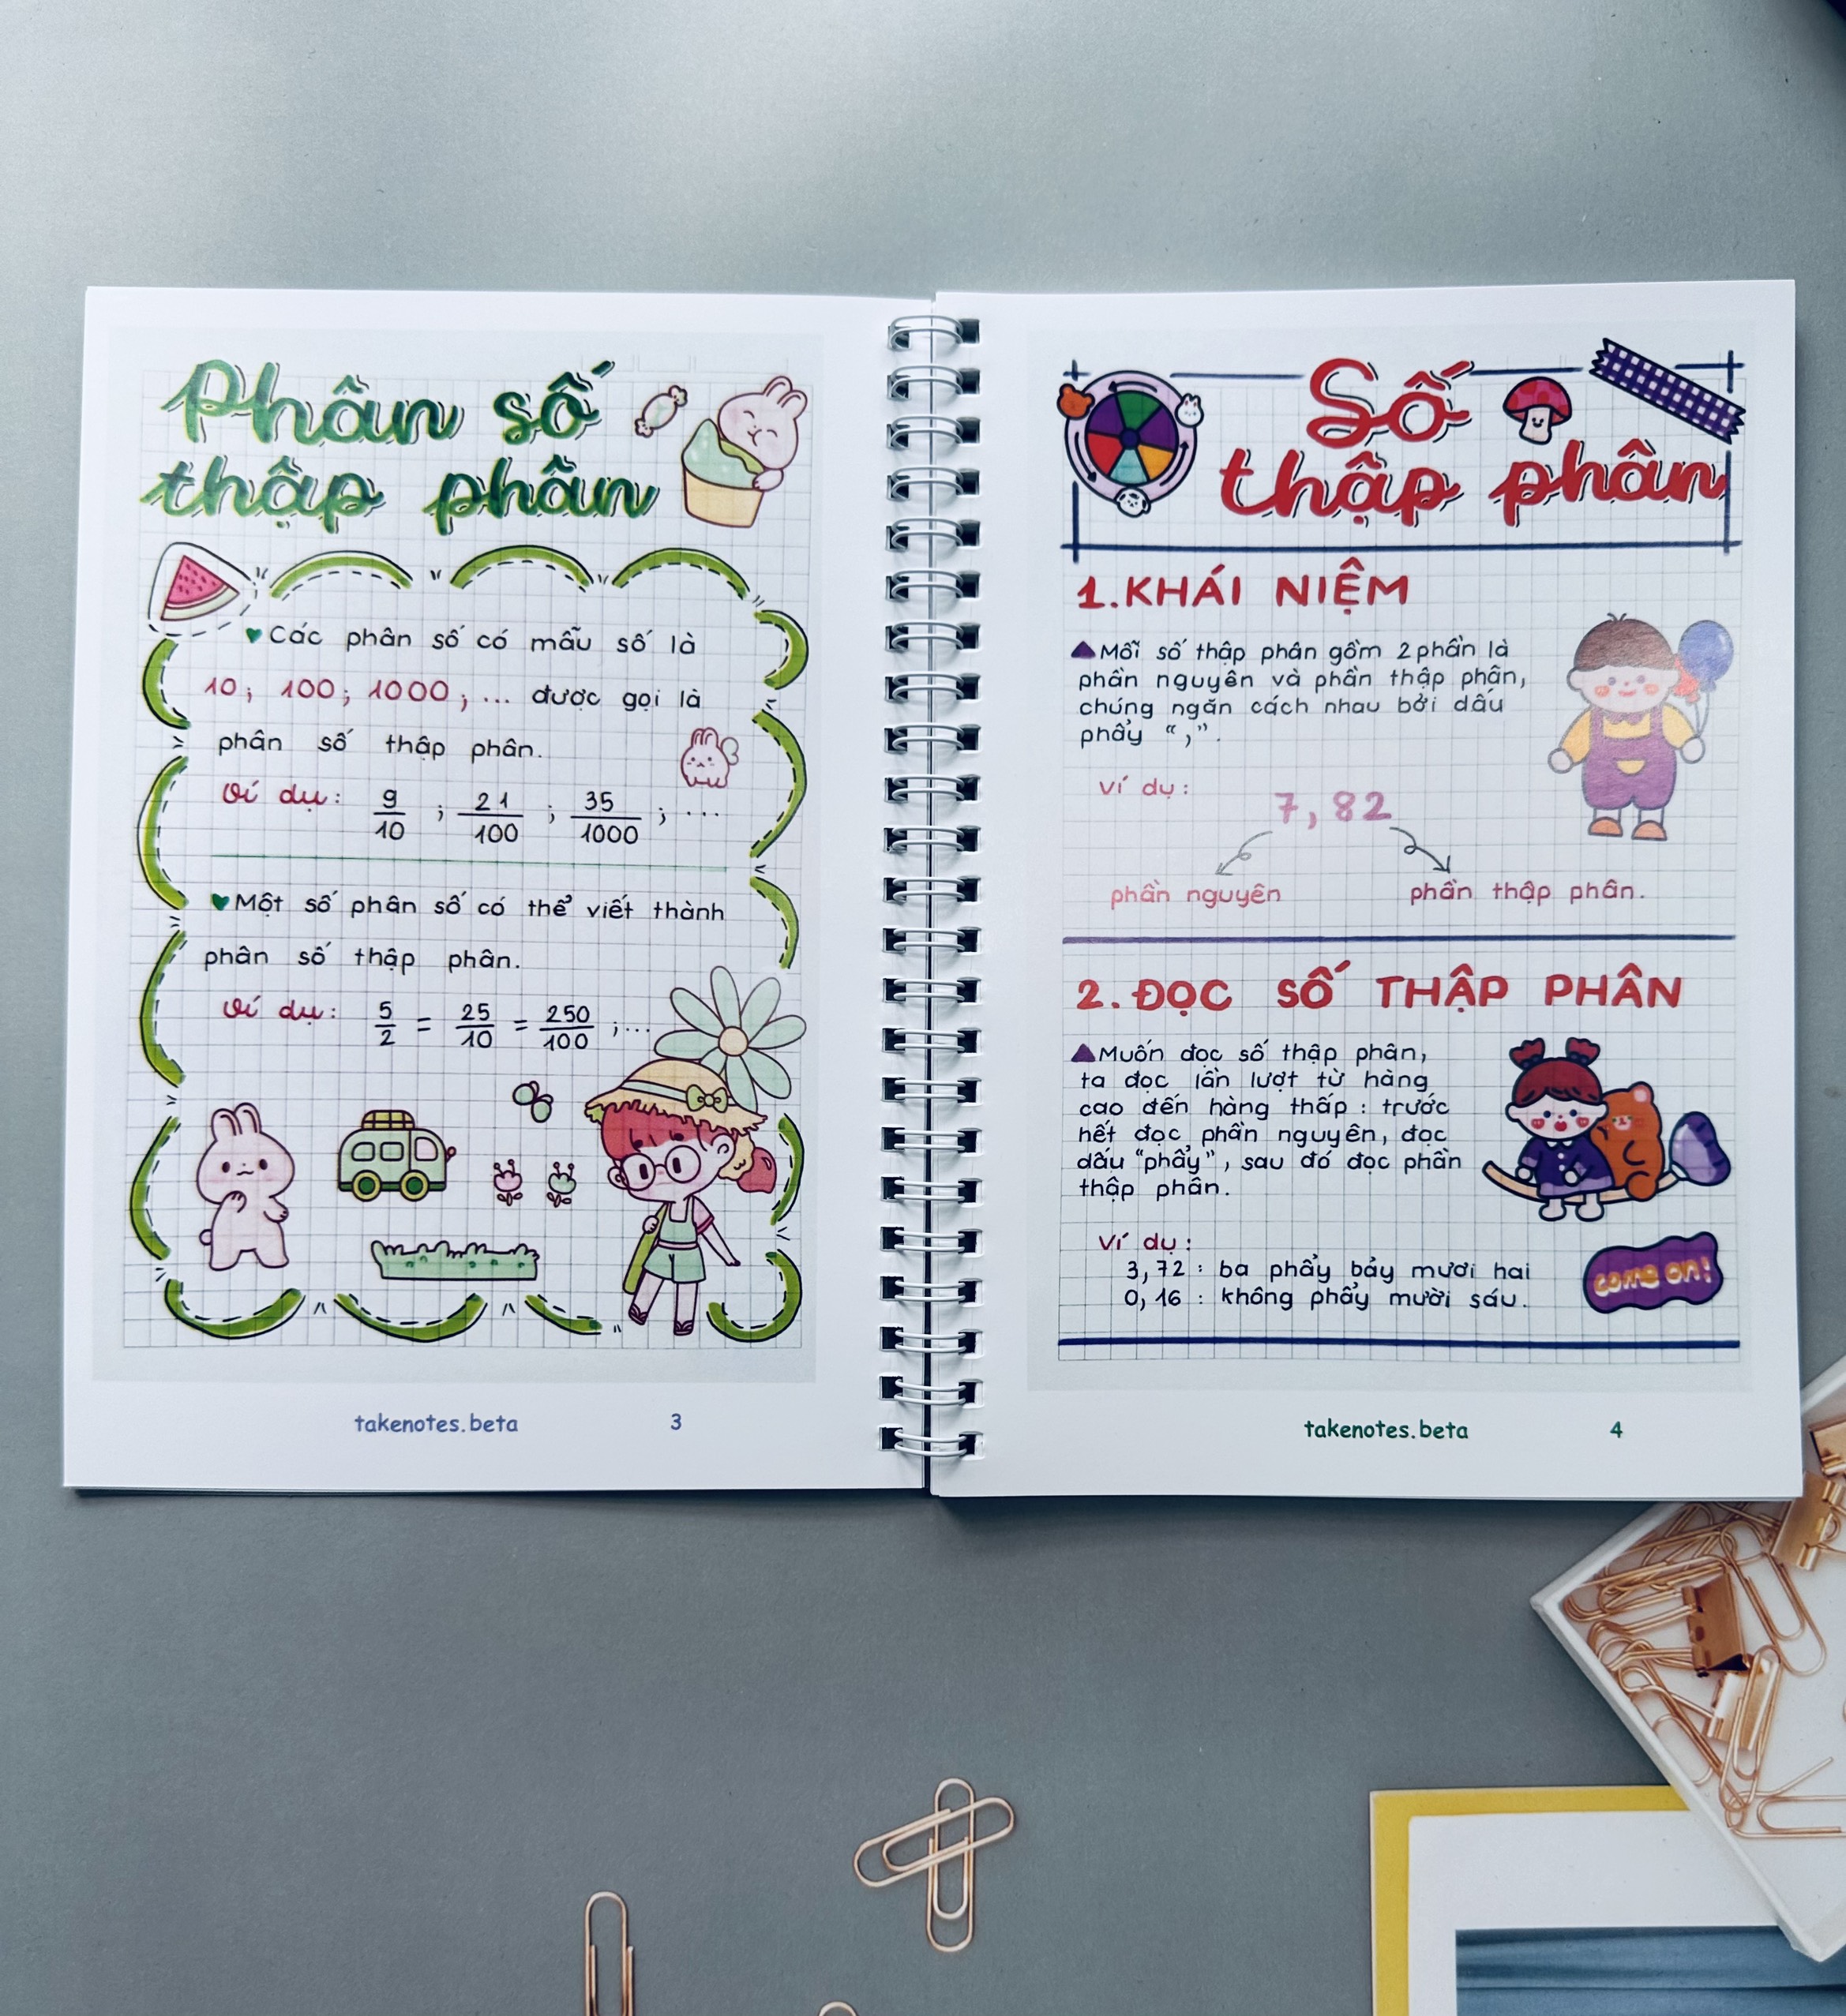 Phân số
thập phân
Các phân số có mẫu số là
10; 100; 1000; ... được gọi là
phân số thập phân.
Ví dụ: 9/10 ; 21/100 ; 35/1000 ; ...
Một số phân số có thể viết thành
phân số thập phân.
Ví dụ: 5/2 = 25/10 = 250/100 ;...
takenotes.beta 3
Số
thập phân
1. KHÁI NIỆM
Mỗi số thập phân gồm 2 phần là
phần nguyên và phần thập phân,
chúng ngăn cách nhau bởi dấu
phẩy “,”.
Ví dụ:
7,82
phần nguyên phần thập phân.
2. ĐỌC SỐ THẬP PHÂN
Muốn đọc số thập phân,
ta đọc lần lượt từ hàng
cao đến hàng thấp: trước
hết đọc phần nguyên, đọc
dấu “phẩy”, sau đó đọc phần
thập phân.
Ví dụ:
3,72 : ba phẩy bảy mươi hai
0,16 : không phẩy mười sáu.
come on!
takenotes.beta 4